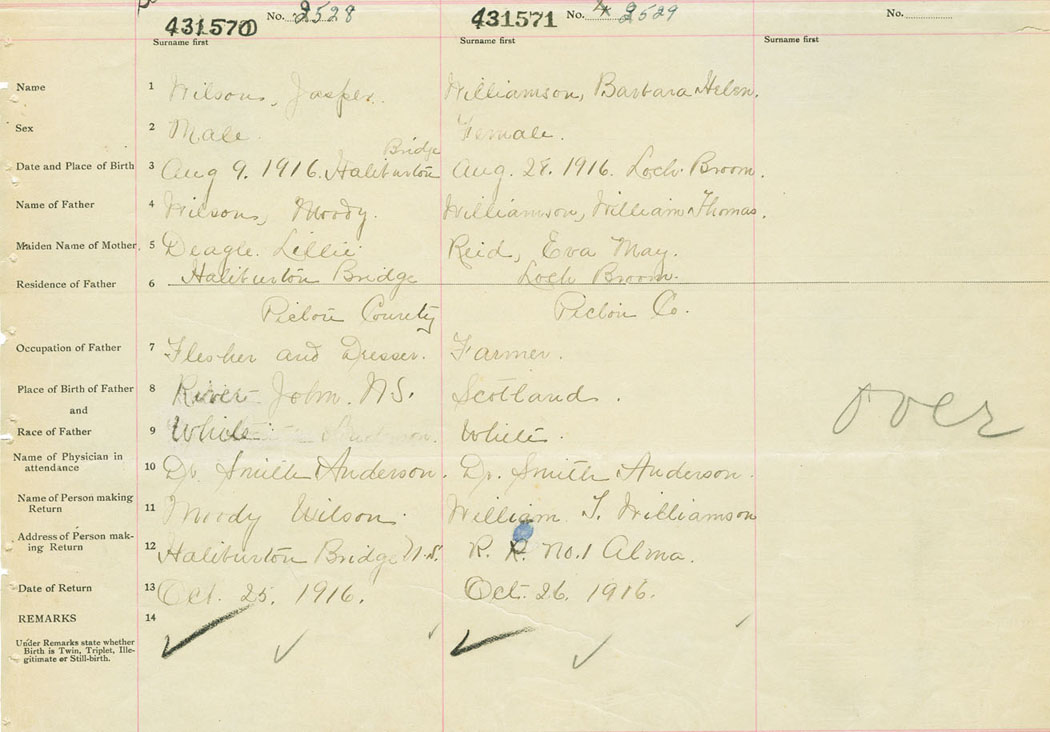 431570 No. 2528 431571 No. 2529 No.
Surname first Surname first Surname first
Name 1 Wilson, Jasper. Williamson, Barbara Helen.
Sex 2 Male. Female.
Bridge
Date and Place of Birth 3 Aug 9. 1916. Haliburton Aug. 28. 1916. Loch Broom.
Name of Father 4 Wilson, Moody. Williamson, William Thomas.
Maiden Name of Mother 5 Deagle. Lillie Reid, Eva May.
Haliburton Bridge Loch Broom.
Residence of Father 6
Pictou County Pictou Co.
Occupation of Father 7 Flesher and Dresser. Farmer.
Place of Birth of Father 8 River John. N.S. Scotland.
and
over
Race of Father 9 White White.
Name of Physician in
attendance 10 Dr. Smith Anderson. Dr. Smith Anderson.
Name of Person making
Return 11 Moody Wilson. William T. Williamson
Address of Person mak-
ing Return 12 Haliburton Bridge N.S. R. R. No. 1 Alma.
Date of Return 13 Oct. 25. 1916. Oct. 26. 1916.
REMARKS 14
Under Remarks state whether
Birth is Twin, Triplet, Ille-
gitimate or Still-birth.